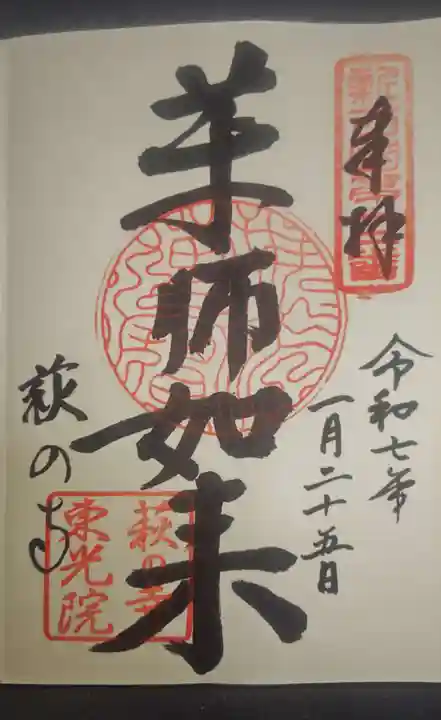 奉拝
令和七年
一月二十五日
薬師如来
萩のち
萩の寺
東光院